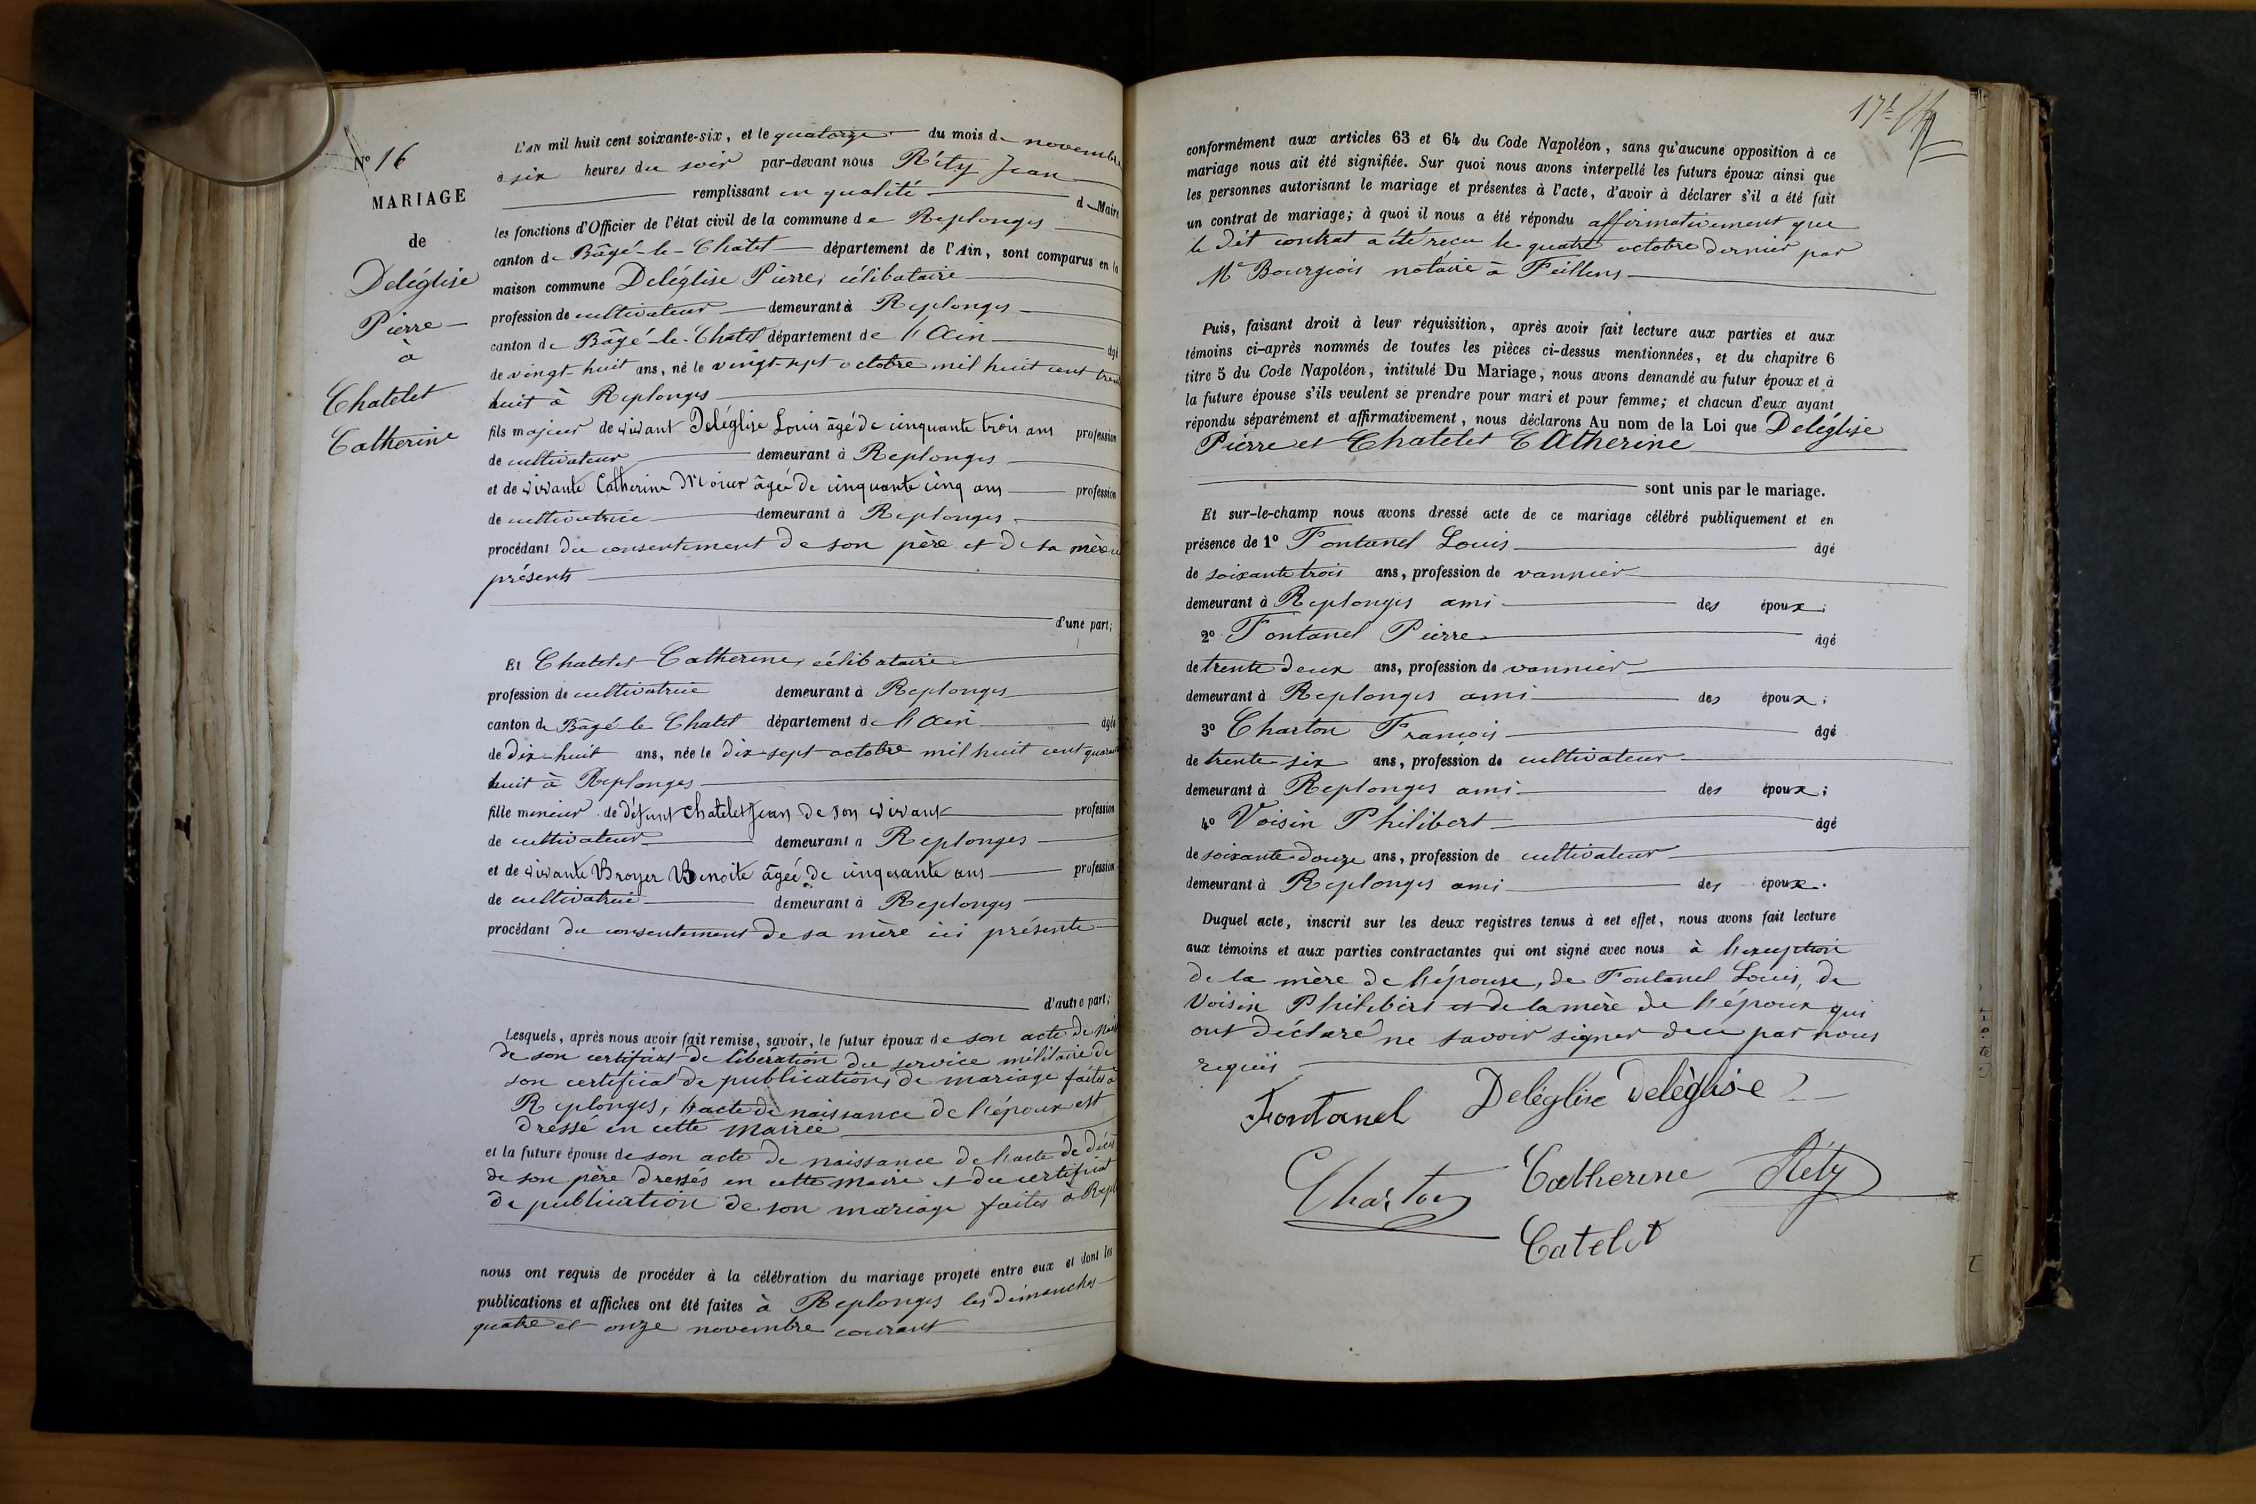 N° 16
MARIAGE
de
Deléglise
Pierre
à
Chatelet
Catherine
L'AN mil huit cent soixante-six, et le quatorze du mois de novembre
à six heures du soir par-devant nous Réty Jean
remplissant en qualité de Maire
les fonctions d'Officier de l'état civil de la commune de Replonges
canton de Bâgé-le-Chatel département de l'Ain, sont comparus en la
maison commune Deléglise Pierre, célibataire
profession de cultivateur demeurant à Replonges
canton de Bâgé-le-Chatel département de l'Ain âgé
de vingt-huit ans, né le vingt-sept octobre mil huit cent trente
huit à Replonges
fils majeur de vivant Deléglise Louis âgé de cinquante trois ans profession
de cultivateur demeurant à Replonges
et de vivante Catherine âgée de cinquante cinq ans profession
de cultivatrice demeurant à Replonges
procédant du consentement de son père et de sa mère ci
présents
d'une part;
Et Chatelet Catherine, célibataire
profession de cultivatrice demeurant à Replonges
canton de Bâgé le Chatel département de l'Ain âgée
de dix-huit ans, née le dix-sept octobre mil huit cent quarante
huit à Replonges
fille mineur de défunt Chatelet Jean de son vivant profession
de cultivateur demeurant à Replonges
et de vivante Broyer Benoite âgée de cinquante ans profession
de cultivatrice demeurant à Replonges
procédant du consentement de sa mère ici présente
d'autre part;
Lesquels, après nous avoir fait remise, savoir, le futur époux de son acte de
de son certificat de libération du service militaire de
son certificat de publications de mariage faites à
Replonges, l'acte de naissance de l'époux est
dressé en cette mairie
et la future épouse de son acte de naissance de l'acte de décès
de son père dressés en cette mairie et du certificat
de publication de son mariage faites à Repl
nous ont requis de procéder à la célébration du mariage projeté entre eux et dont les
publications et affiches ont été faites à Replonges les dimanches
quatre et onze novembre courant
conformément aux articles 63 et 64 du Code Napoléon, sans qu'aucune opposition à ce
mariage nous ait été signifiée. Sur quoi nous avons interpellé les futurs époux ainsi que
les personnes autorisant le mariage et présentes à l'acte, d'avoir à déclarer s'il a été fait
un contrat de mariage; à quoi il nous a été répondu affirmativement que
le dit contrat a été reçu le quatre octobre dernier par
Me Bourgeois notaire à Feillens
Puis, faisant droit à leur réquisition, après avoir fait lecture aux parties et aux
témoins ci-après nommés de toutes les pièces ci-dessus mentionnées, et du chapitre 6
titre 5 du Code Napoléon, intitulé Du Mariage, nous avons demandé au futur époux et à
la future épouse s'ils veulent se prendre pour mari et pour femme; et chacun d'eux ayant
répondu séparément et affirmativement, nous déclarons Au nom de la Loi que Deléglise
Pierre et Chatelet CAtherine
sont unis par le mariage.
Et sur-le-champ nous avons dressé acte de ce mariage célébré publiquement et en
présence de 1° Fontanel Louis âgé
de soixante trois ans, profession de vannier
demeurant à Replonges ami des époux;
2° Fontanel Pierre âgé
de trente deux ans, profession de vannier
demeurant à Replonges ami des époux;
3° Charton François âgé
de trente six ans, profession de cultivateur
demeurant à Replonges ami des époux;
4° Voisin Philibert âgé
de soixante douze ans, profession de cultivateur
demeurant à Replonges ami des époux.
Duquel acte, inscrit sur les deux registres tenus à cet effet, nous avons fait lecture
aux témoins et aux parties contractantes qui ont signé avec nous à l'exception
de la mère de l'épouse, de Fontanel Louis, de
Voisin Philibert et de la mère de l'époux qui
ont déclaré ne savoir signer de ce par nous
requis
Fontanel Deléglise Delèglise
Charton Catherine Réty
Catelet